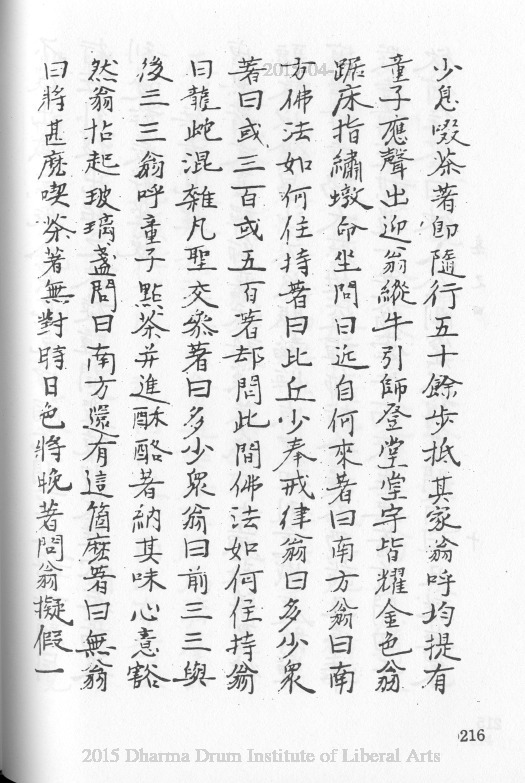 少息啜茶著即隨行五十餘步抵其家翁呼均提有
童子應聲出迎翁縱牛引師登堂堂宇皆耀金色翁
踞床指繡墩命坐問曰近自何來著曰南方翁曰南
方佛法如何住持著曰比丘少奉戒律翁曰多少衆
著曰或三百或五百著却問此間佛法如何住持翁
曰龍虵混雜凡聖交叅著曰多少衆翁曰前三三與
後三三翁呼童子點茶并進酥酪著納其味心意豁
然翁拈起玻璃盞問曰南方還有這箇麽著曰無翁
曰將甚麽喫茶著無對時日色將晚著問翁擬假一
216
2015 Dharma Drum Institute of Liberal Arts